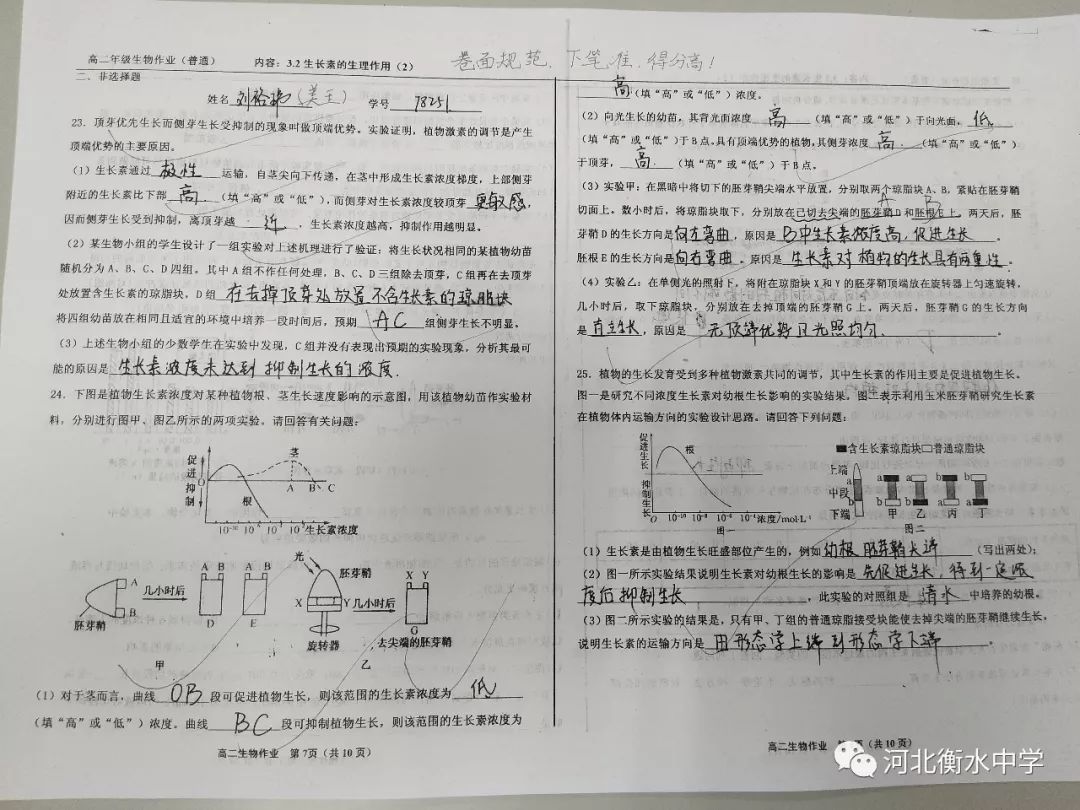 高二年级生物作业（普通） 内容：3.2生长素的生理作用（2） 卷面规范，下笔准，得分高！
二、非选择题
姓名 (美王) 学号 18251
23．顶芽优先生长而侧芽生长受抑制的现象叫做顶端优势。实验证明，植物激素的调节是产生
顶端优势的主要原因。
（1）生长素通过 极性 运输，自茎尖向下传递，在茎中形成生长素浓度梯度，上部侧芽
附近的生长素比下部 高．（填“高”或“低”），而侧芽对生长素浓度较顶芽 更敏感，
因而侧芽生长受到抑制，离顶芽越 近 ，生长素浓度越高，抑制作用越明显。
（2）某生物小组的学生设计了一组实验对上述机理进行了验证：将生长状况相同的某植物幼苗
随机分为A、B、C、D四组。其中A组不作任何处理，B、C、D三组除去顶芽，C组再在去顶芽
处放置含生长素的琼脂块，D组 在去掉顶芽处放置不含生长素的琼脂块
将四组幼苗放在相同且适宜的环境中培养一段时间后，预期 AC 组侧芽生长不明显。
（3）上述生物小组的少数学生在实验中发现，C组并没有表现出预期的实验现象，分析其最可
能的原因是 生长素浓度未达到抑制生长的浓度．
24．下图是植物生长素浓度对某种植物根、茎生长速度影响的示意图，用该植物幼苗作实验材
料，分别进行图甲、图乙所示的两项实验。请回答有关问题：
促进 抑制 O 根 茎 A B C
生长素浓度
A B 胚芽鞘 几小时后 A B A B D E 甲
光 胚芽鞘 X Y 旋转器 几小时后 X Y G 去尖端的胚芽鞘 乙
（1）对于茎而言，曲线 OB 段可促进植物生长，则该范围的生长素浓度为 低
（填“高”或“低”）浓度。曲线 BC 段可抑制植物生长，则该范围的生长素浓度为
高二生物作业 第7页（共10页）
高（填“高”或“低”）浓度。
（2）向光生长的幼苗，其背光面浓度 高 （填“高”或“低”）于向光面，低
（填“高”或“低”）于B点。具有顶端优势的植物，其侧芽浓度 高．（填“高”或“低”）
于顶芽，高．（填“高”或“低”）于B点。
（3）实验甲：在黑暗中将切下的胚芽鞘尖端水平放置，分别取两个琼脂块A、B，紧贴在胚芽鞘
A B
切面上。数小时后，将琼脂块取下，分别放在已切去尖端的胚芽鞘D和胚根E上。两天后，胚
芽鞘D的生长方向是 向左弯曲，原因是 B中生长素浓度高，促进生长 。
胚根E的生长方向是 向右弯曲。原因是 生长素对植物的生长具有两重性 。
（4）实验乙：在单侧光的照射下，将附在琼脂块X和Y的胚芽鞘顶端放在旋转器上匀速旋转，
几小时后，取下琼脂块，分别放在去掉顶端的胚芽鞘G上。两天后，胚芽鞘G的生长方向
是 直立生长，原因是 无顶端优势且光照均匀． 。
25．植物的生长发育受到多种植物激素共同的调节，其中生长素的作用主要是促进植物生长。
图一是研究不同浓度生长素对幼根生长影响的实验结果，图二表示利用玉米胚芽鞘研究生长素
在植物体内运输方向的实验设计思路。请回答下列问题：
促进生长 抑制生长 根 O 10⁻¹⁰ 10⁻⁸ 10⁻⁶ 10⁻⁴ 浓度/mol·L⁻¹ 图一
含生长素琼脂块 普通琼脂块
上端 中段 下端 a b a b a b b a b a 甲 乙 丙 丁 图二
（1）生长素是由植物生长旺盛部位产生的，例如 幼根 胚芽鞘尖端 （写出两处）；
（2）图一所示实验结果说明生长素对幼根生长的影响是 先促进生长，得到一定浓
度后抑制生长 ，此实验的对照组是 清水 中培养的幼根。
（3）图二所示实验的结果是，只有甲、丁组的普通琼脂接受块能使去掉尖端的胚芽鞘继续生长，
说明生长素的运输方向是 由形态学上端到形态学下端 。
高二生物作业 第 页（共10页）
河北衡水中学